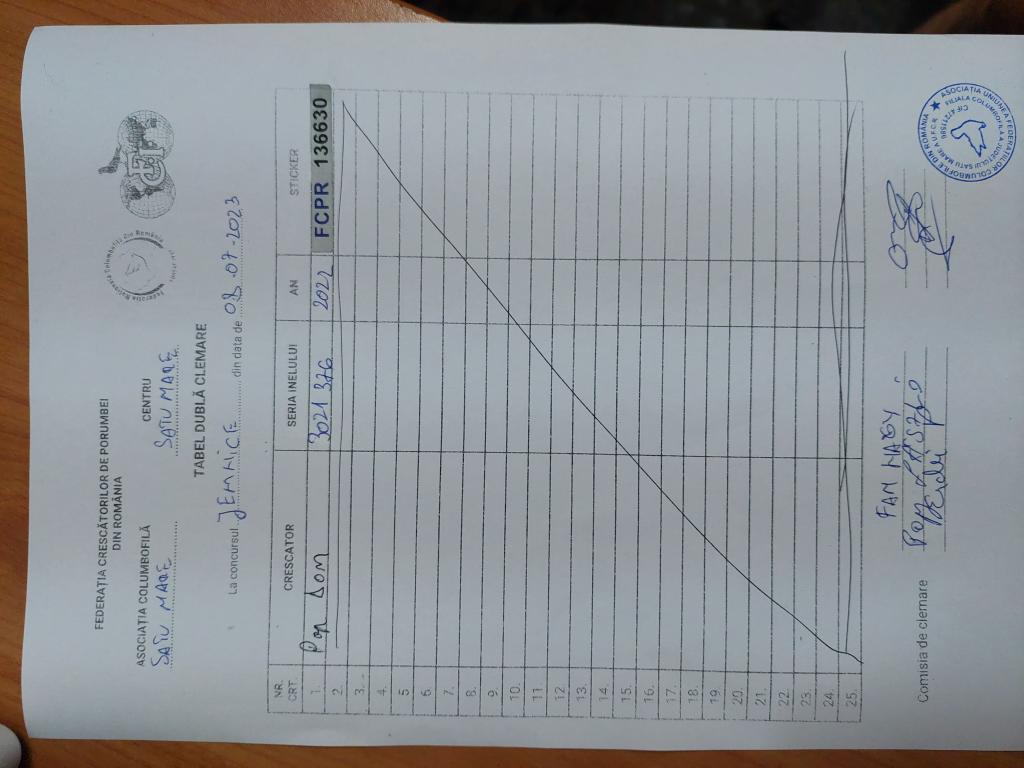 FEDERAȚIA CRESCĂTORILOR DE PORUMBEI
DIN ROMÂNIA
Federația Națională Columbofilă din România
FCPR
ASOCIAȚIA COLUMBOFILĂ
SATU MARE
CENTRU
SATU MARE
TABEL DUBLĂ CLEMARE
La concursul JEMNICE din data de 08.07.2023
NR. CRT. CRESCATOR SERIA INELULUI AN STICKER
1. Pop Don 3021 376 2022 FCPR 136630
2.
3.
4.
5
6.
7.
8.
9.
10.
11.
12.
13.
14.
15.
16.
17.
18.
19.
20.
21.
22.
23.
24.
25.
Comisia de clemare
FAN
Pop
ASOCIAȚIA UNIUNEA FEDERAȚIILOR COLUMBOFILE DIN ROMÂNIA
FILIALA COLUMBOFILĂ A JUDEȚULUI SATU MARE A U.F.C.R.